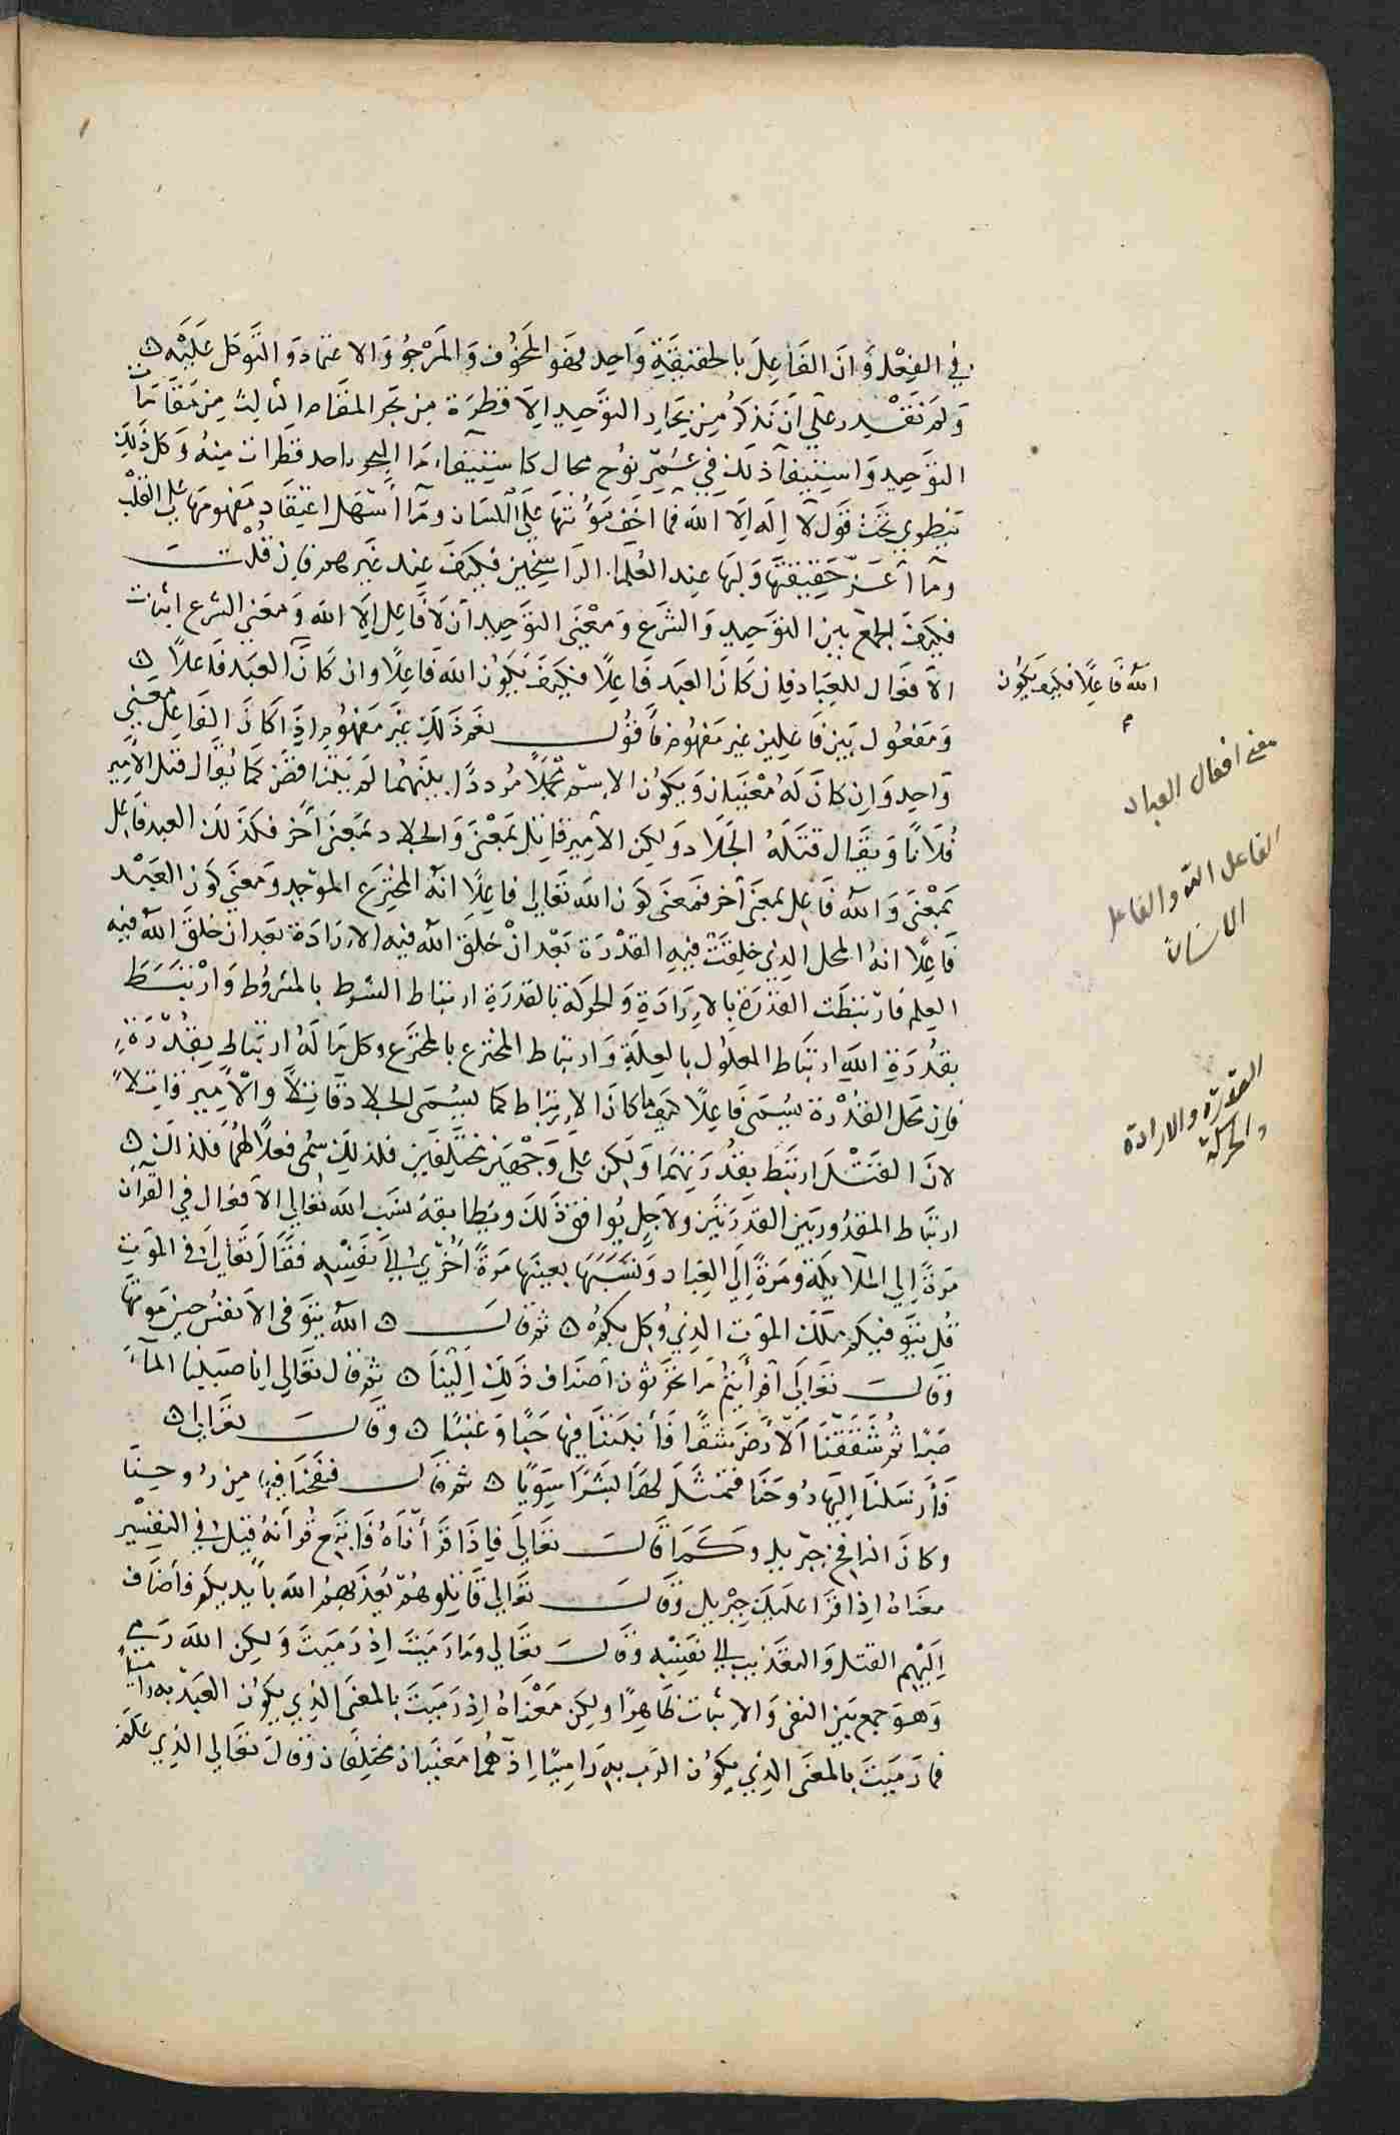 في الفعل وان الفاعل بالحقيقة واحد فهو المخوف والمرجو والاعتماد والتوكل عليه ه
ولم نقدر على ان نذكر من بحار التوحيد الا قطرة من بحر المقام الثالث من مقامات
التوحيد واستيفآ ذلك في عمر نوح محال كاستيفاء مآ البحر باخذ قطرات منه وكل ذلك
ينطوي تحت قول لآ اله الا الله فما اخف مؤنتها على اللسان ومآ اسهل اعتقاد مفهومها على القلب
ومآ اعز حقيقتها ولبها عند العلمآ الراسخين فكيف عند غيرهم فان قلت
فكيف الجمع بين التوحيد والشرع ومعنى التوحيد ان لا فاعل الا الله ومعنى الشرع اثبات
الافعال للعباد فان كان العبد فاعلا فكيف يكون الله فاعلا وان كان العبد فاعلا ه
ومفعول بين فاعلين غير مفهوم فأقول نعم ذلك غير مفهوم اذا كان للفاعل معنى
واحد وان كان له معنيان ويكون الاسم مجملا مرددا بينهما لم يتناقض كما يقال قتل الامير
فلانا ويقال قتله الجلاد ولكن الامير قاتل بمعنى والجلاد بمعنى آخر فكذلك العبد فاعل
بمعنى والله فاعل بمعنى آخر فمعنى كون الله تعالى فاعلا انه المخترع الموجد ومعنى كون العبد
فاعلا انه المحل الذي خلقت فيه القدرة بعد ان خلق الله فيه الارادة بعد ان خلق الله فيه
العلم فارتبطت القدرة بالارادة والحركة بالقدرة ارتباط الشرط بالمشروط وارتبط
بقدرة الله ارتباط المعلول بالعلة وارتباط المخترع بالمخترع وكل ما له ارتباط بقدرة
فان محل القدرة يسمى فاعلا كيف ما كان الارتباط كما يسمى الجلاد قاتلا والامير قاتلا
لان القتل ارتبط بقدرتيهما ولكن على وجهين مختلفين فلذلك سمى فعلا لهما فلذلك ه
ارتباط المقدور بين القدرتين ولاجل يوافق ذلك ويطابقه نسب الله تعالى الافعال في القرآن
مرة الى الملايكة ومرة الى العباد ونسبها بعينها مرة اخرى الى نفسه فقال تعالى في الموت
قل يتوفيكم ملك الموت الذي وكل بكم ه ثم قال ه الله يتوفى الانفس حين موتها
وقال تعالى أفرأيتم ما تحرثون اضاف ذلك الينا ه ثم قال تعالى انا صببنا المآء
صبا ثم شققنا الارض شقا فأنبتنا فيها حبا وعنبا ه وقال تعالى ه
فأرسلنا اليها روحنا فتمثل لها بشرا سويا ه ثم قال فنفخنا فيها من روحنا
وكان النافخ جبريل وكما قال تعالى فاذا قرأناه فاتبع قرأنه قيل في التفسير
معناه اذا قرا عليك جبريل وقال تعالى قاتلوهم يعذبهم الله بأيديكم فأضاف
اليهم القتل والتعذيب الى نفسه وقال تعالى وما رميت اذ رميت ولكن الله رمى
وهو جمع بين النفى والاثبات ظاهرا ولكن معناه اذ رميت بالمعنى الذي يكون العبد به راميا
فما رميت بالمعنى الذي يكون الرب به راميا اذ هما معنيان مختلفان وقال تعالى الذي علم
الله فاعلا فكيف يكون
معنى افعال العباد
الفاعل الله والفاعل
الانسان
القدرة والارادة
والحركة